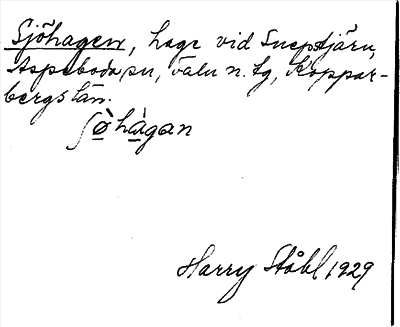 Sjöhagen, hage vid Sneptjärn,
Aspeboda sn, Falu n. tg, Koppar-
bergs län.
ʃø̀hàgan
Harry Ståhl 1929